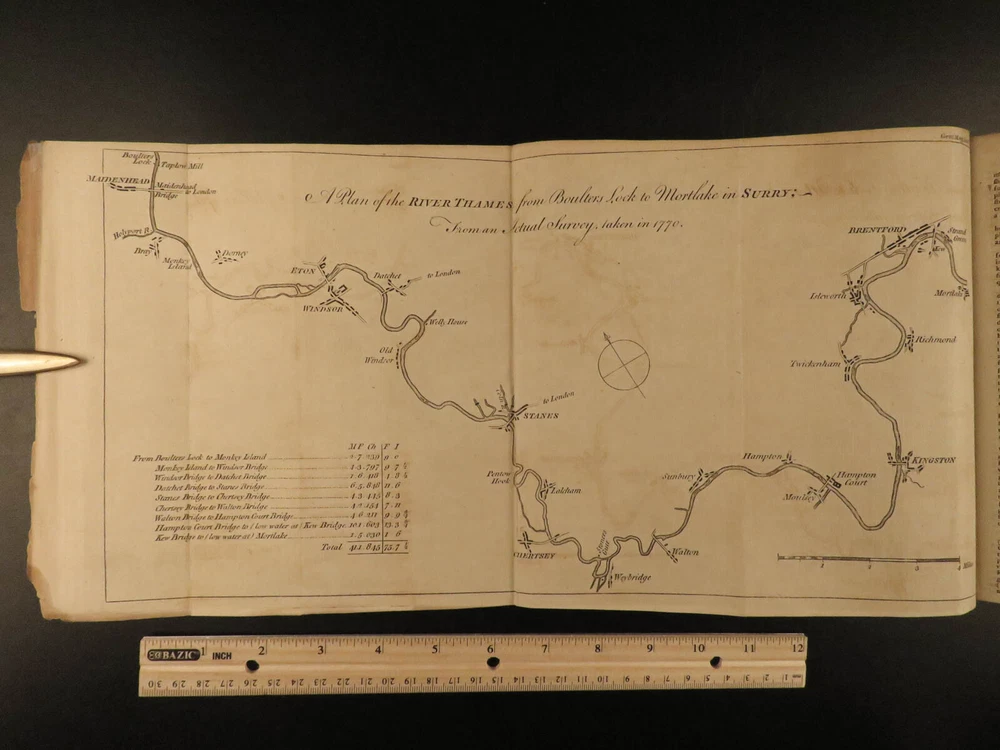 A Plan of the RIVER THAMES from Boulters Lock to Mortlake in SURRY;
From an Actual Survey, taken in 1770.
Boulters
Lock
Taplow Mill
MAIDENHEAD
Maidenhead
Bridge
to London
Bray
Monkey
Island
Dorney
ETON
WINDSOR
Datchet
to London
Old
Windsor
STANES
to London
Penton
Hook
Laleham
CHERTSEY
Weybridge
Walton
Sunbury
Hampton
Hampton
Court
Moulsey
KINGSTON
Twickenham
Richmond
Isleworth
BRENTFORD
Kew
Strand
Green
Mortlake
Miles
M F Ch F I
From Boulters Lock to Monkey Island
Monkey Island to Windsor Bridge
Windsor Bridge to Datchet Bridge
Datchet Bridge to Stanes Bridge
Stanes Bridge to Chertsey Bridge
Chertsey Bridge to Walton Bridge
Walton Bridge to Hampton Court Bridge
Hampton Court Bridge to (low water at) Kew Bridge
Kew Bridge to (low water at) Mortlake
Total
BAZIC 1 INCH 2 3 4 5 6 7 8 9 10 11 12
30 29 28 27 26 25 24 23 22 21 20 19 18 17 16 15 14 13 12 11 10 9 8 7 6 5 4 3 2 1